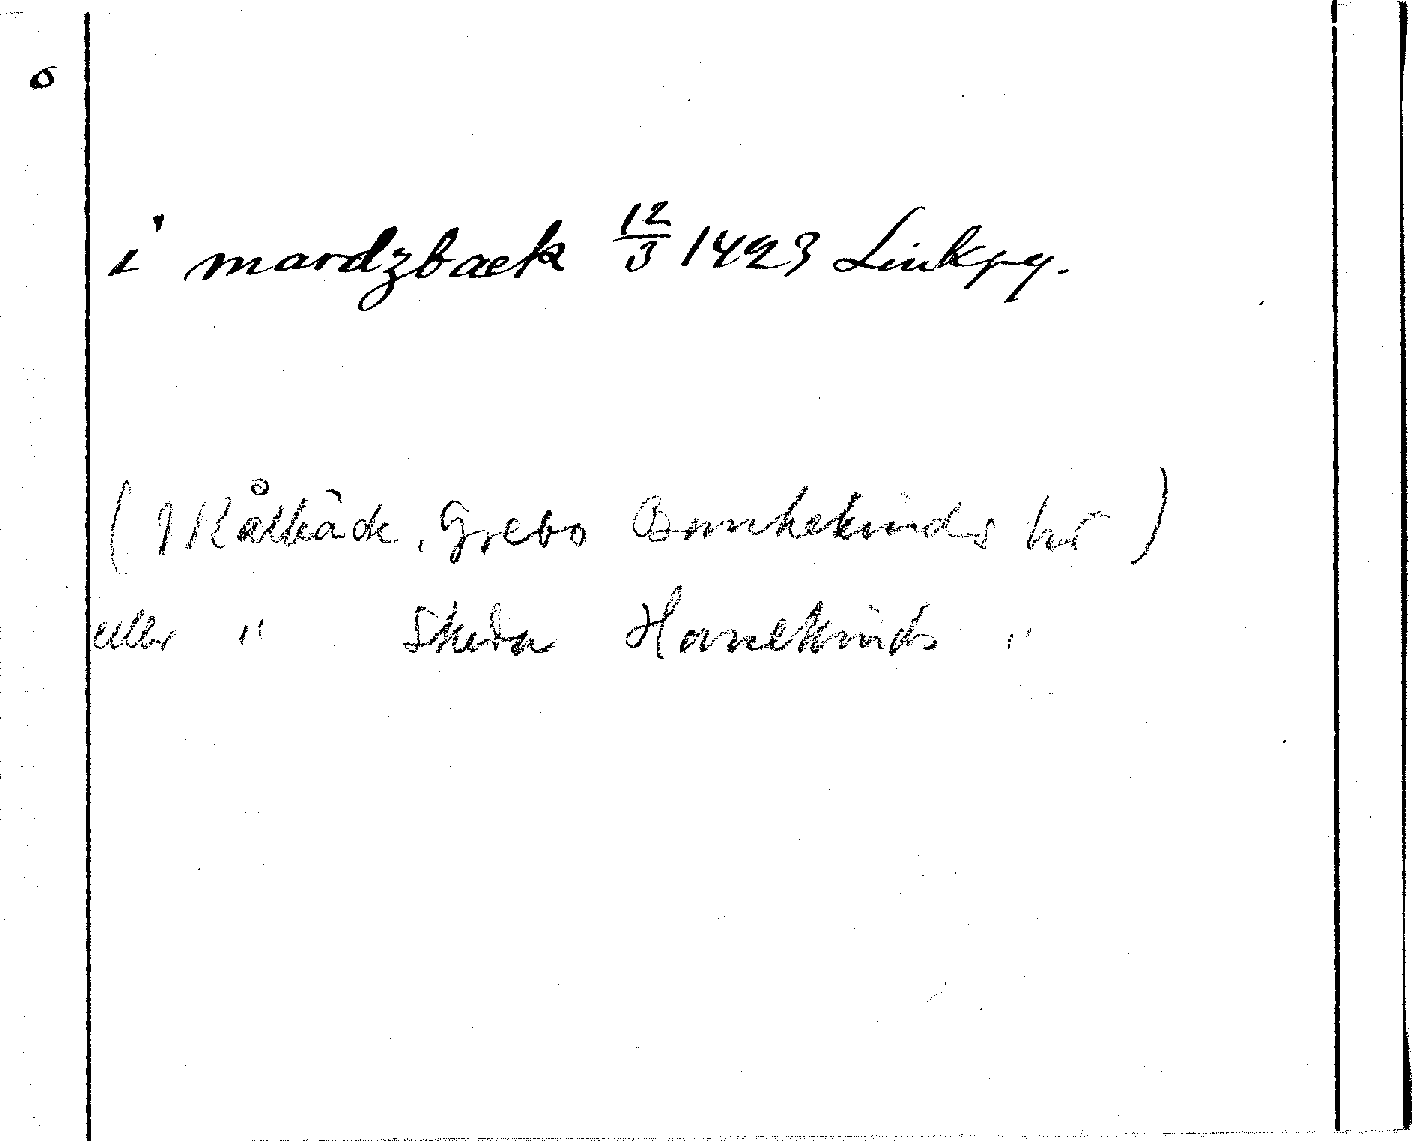 i mardzbæk 12/3 1423 Linkpg.
(Målbäck, Grebo Bankekinds hd)
eller " Skeda Hanekinds "